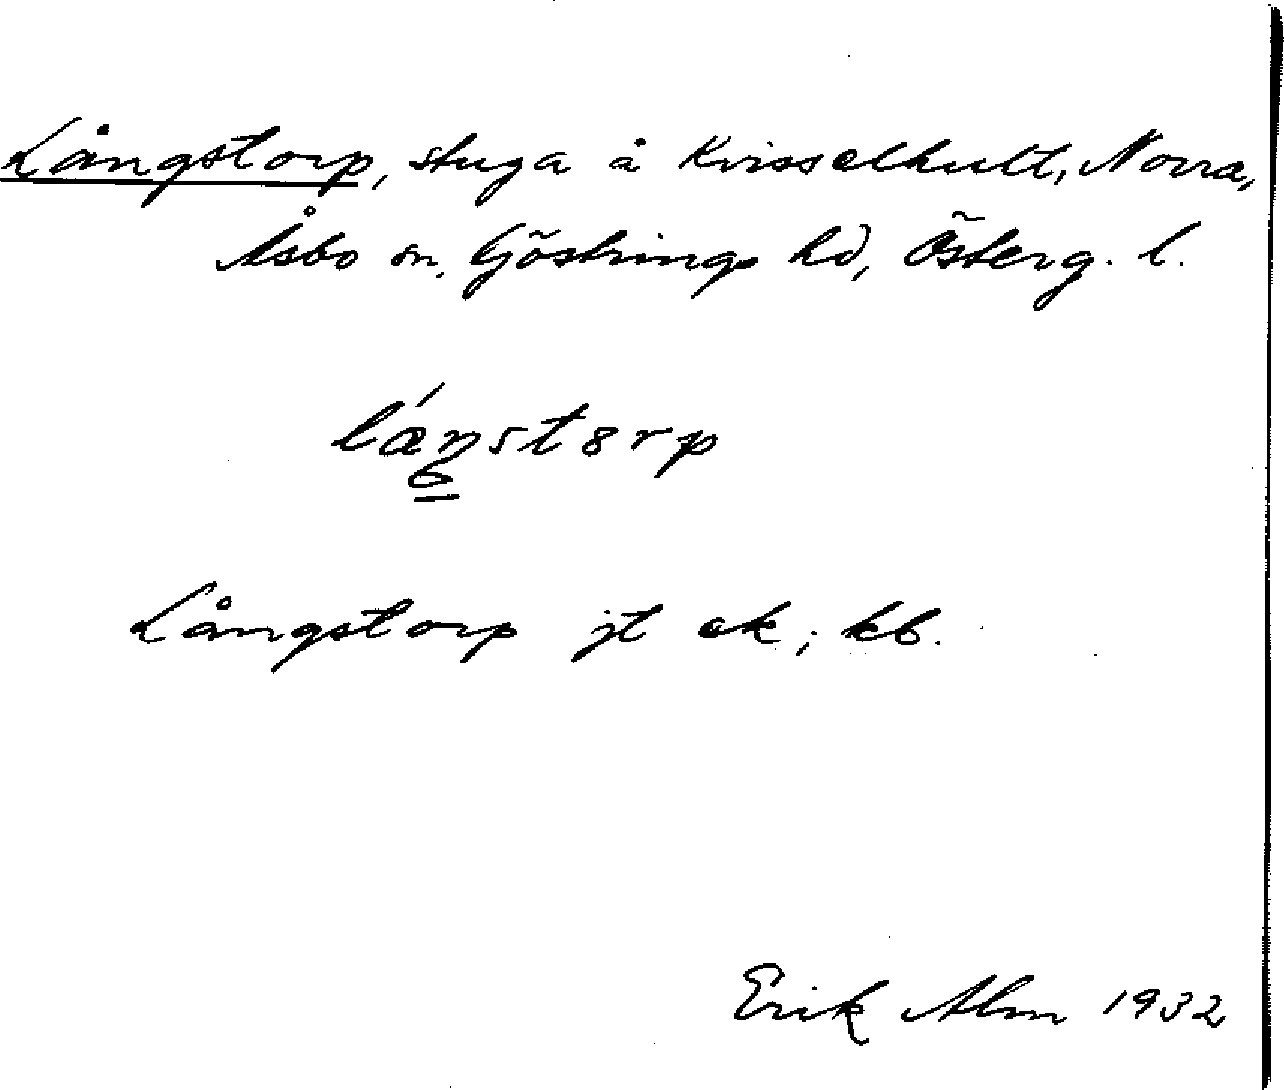 Långstorp, stuga å Kvisselhult, Norra,
Åsbo sn, Göstrings hd, Österg. l.
lǽŋstɵrp
Långstorp jt ek; kb.
Erik Alm 1932